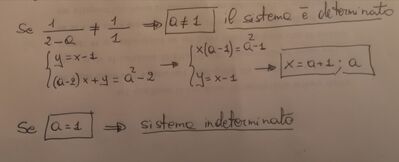 Se 1/(2-a) ≠ 1/1 ⇒ a≠1 il sistema è determinato
{ y = x-1 → { x(a-1) = a²-1 → x = a+1 ; a
{ (a-2)x + y = a²-2   { y = x-1
Se a=1 ⇒ sistema indeterminato